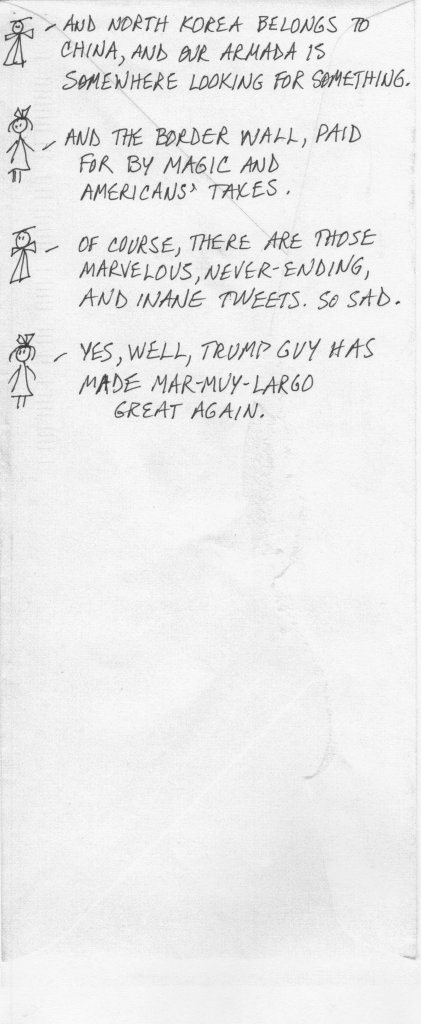 - AND NORTH KOREA BELONGS TO
CHINA, AND OUR ARMADA IS
SOMEWHERE LOOKING FOR SOMETHING.
- AND THE BORDER WALL, PAID
FOR BY MAGIC AND
AMERICANS' TAXES.
- OF COURSE, THERE ARE THOSE
MARVELOUS, NEVER-ENDING,
AND INANE TWEETS. SO SAD.
- YES, WELL, TRUMP GUY HAS
MADE MAR-MUY-LARGO
GREAT AGAIN.